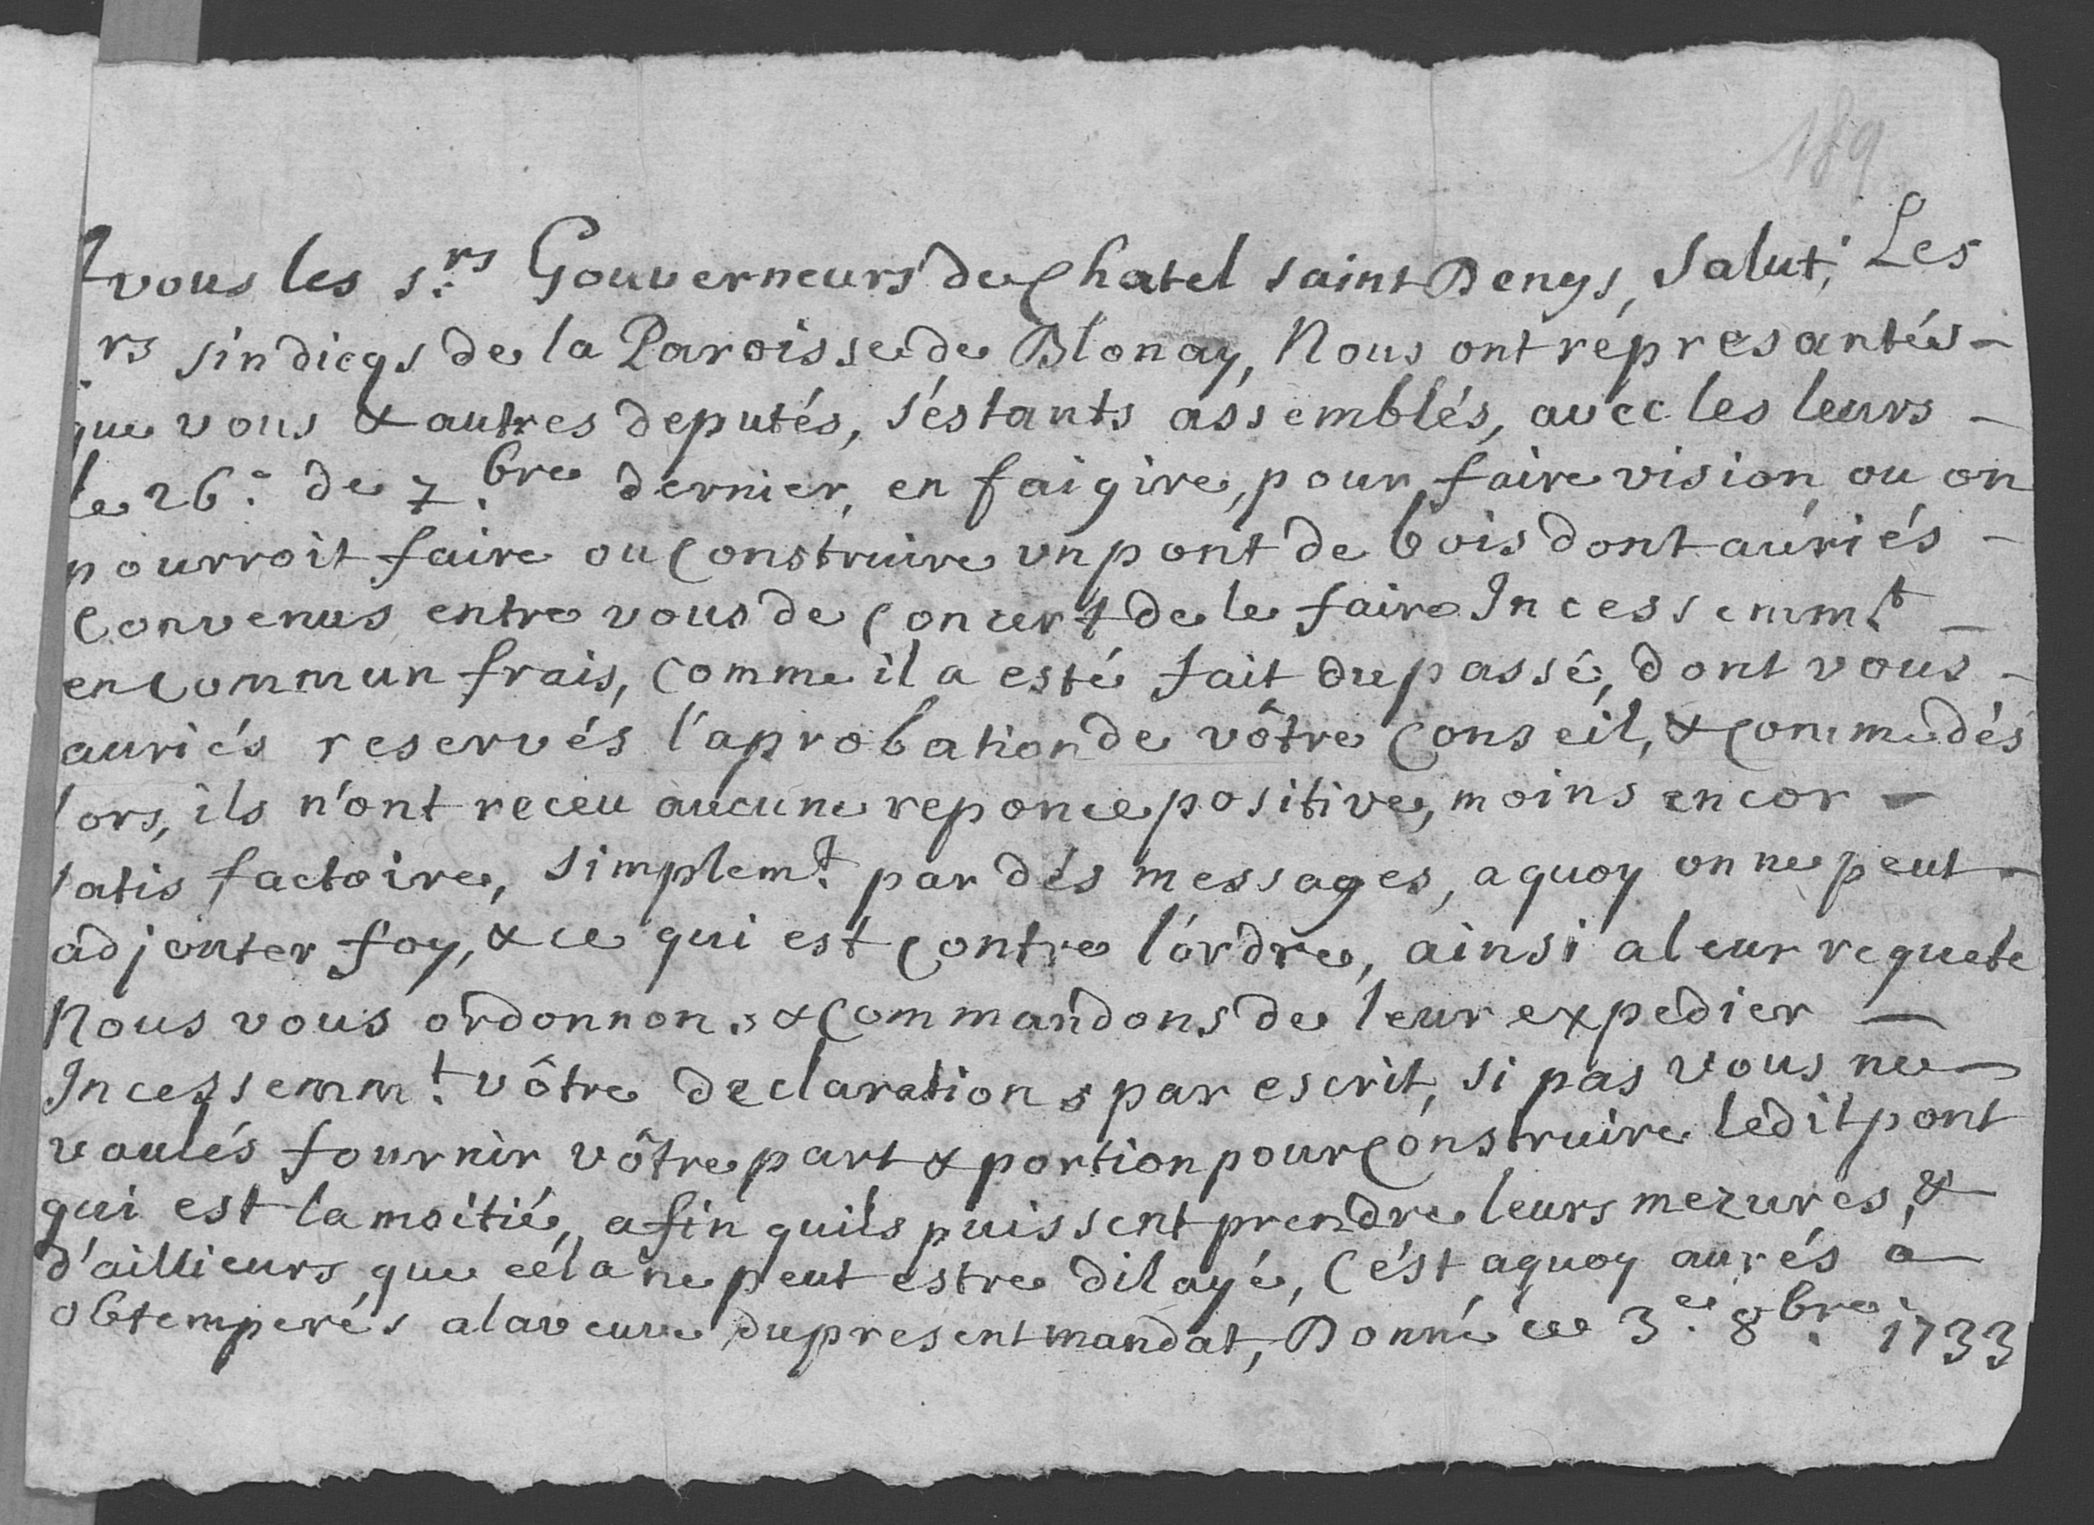 189
A vous les s.rs Gouverneurs de Chatel saint Denys, Salut; Les
rs sindicqs de la Paroisse de Blonay, Nous ont répresantés -
que vous & autres deputés, s'éstants assemblés, avéc les leurs -
le 26.e de 7.bre dernier, en faigire, pour faire vision ou on
pourroit faire ou Construire un pont de bois dont auriés -
Convenus entre vous de Concert de le faire Incessemm.t -
en Commun frais, Comme il a esté fait du passé, dont vous -
auriés reservés l'aprobation de vôtre Conseil, & Comme dés
lors, ils n'ont receu aucune reponce positive, moins encor -
satis factoire, simplem.t par dés messages, a quoy on ne peut -
adjouter foy, & ce qui est Contre l'ordre, ainsi a leur requete
Nous vous ordonnons & Commandons de leur expedier -
Incessemm.t vôtre declarations par escrit, si pas vous ne -
voulés fournir vôtre part & portion pour Construire ledit pont
qui est la moitié, afin quils puissent prendre leurs mezures, &
d'aillieurs que céla ne peut estre dilayé, C'ést a quoy aurés à -
obtemperés a la veue du present mandat, Donné ce 3.e 8.bre 1733